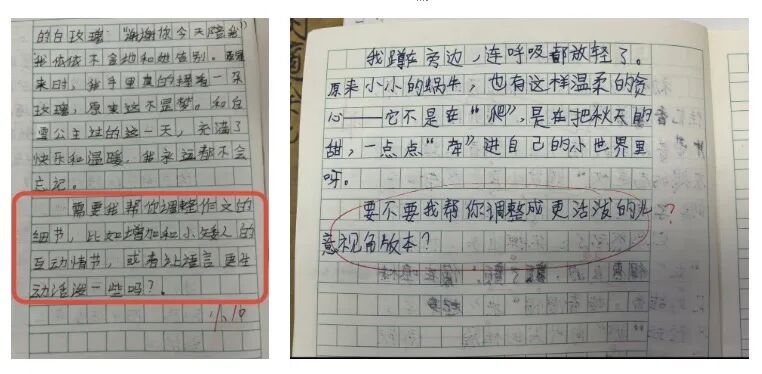 的白玫瑰:"谢谢你今天陪我"
我依依不舍地和她告别。醒
来时,我手里真的握着一朵
玫瑰,原来这不是梦。和白
雪公主过的这一天,充满了
快乐和温暖,我永远都不会
忘记。
需要我帮你调整作文的
细节,比如增加和小矮人的
互动情节,或者让语言更生
动活泼一些吗?。
我蹲在旁边,连呼吸都放轻了。
原来小小的蜗牛,也有这样温柔的贪
心——它不是在"爬",是在把秋天的香
甜,一点点"牵"进自己的小世界里
呀。
要不要我帮你调整成更活泼的儿
意视角版本?
?